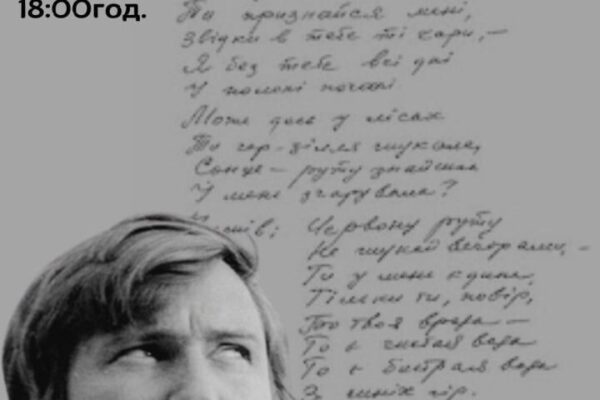 18:00год.
Ти признайся мені,
Звідки в тебе ті чари, –
Я без тебе всі дні
У полоні печалі.
Може десь у лісах
Ти чар-зілля шукала,
Сонце – руту знайшла
І мене зчарувала?
Приспів: Червону руту
Не шукай вечорами, –
Ти у мене єдина,
Тільки ти, повір,
Бо твоя врода –
То є чистая вода
То є бистрая вода
З синіх гір.